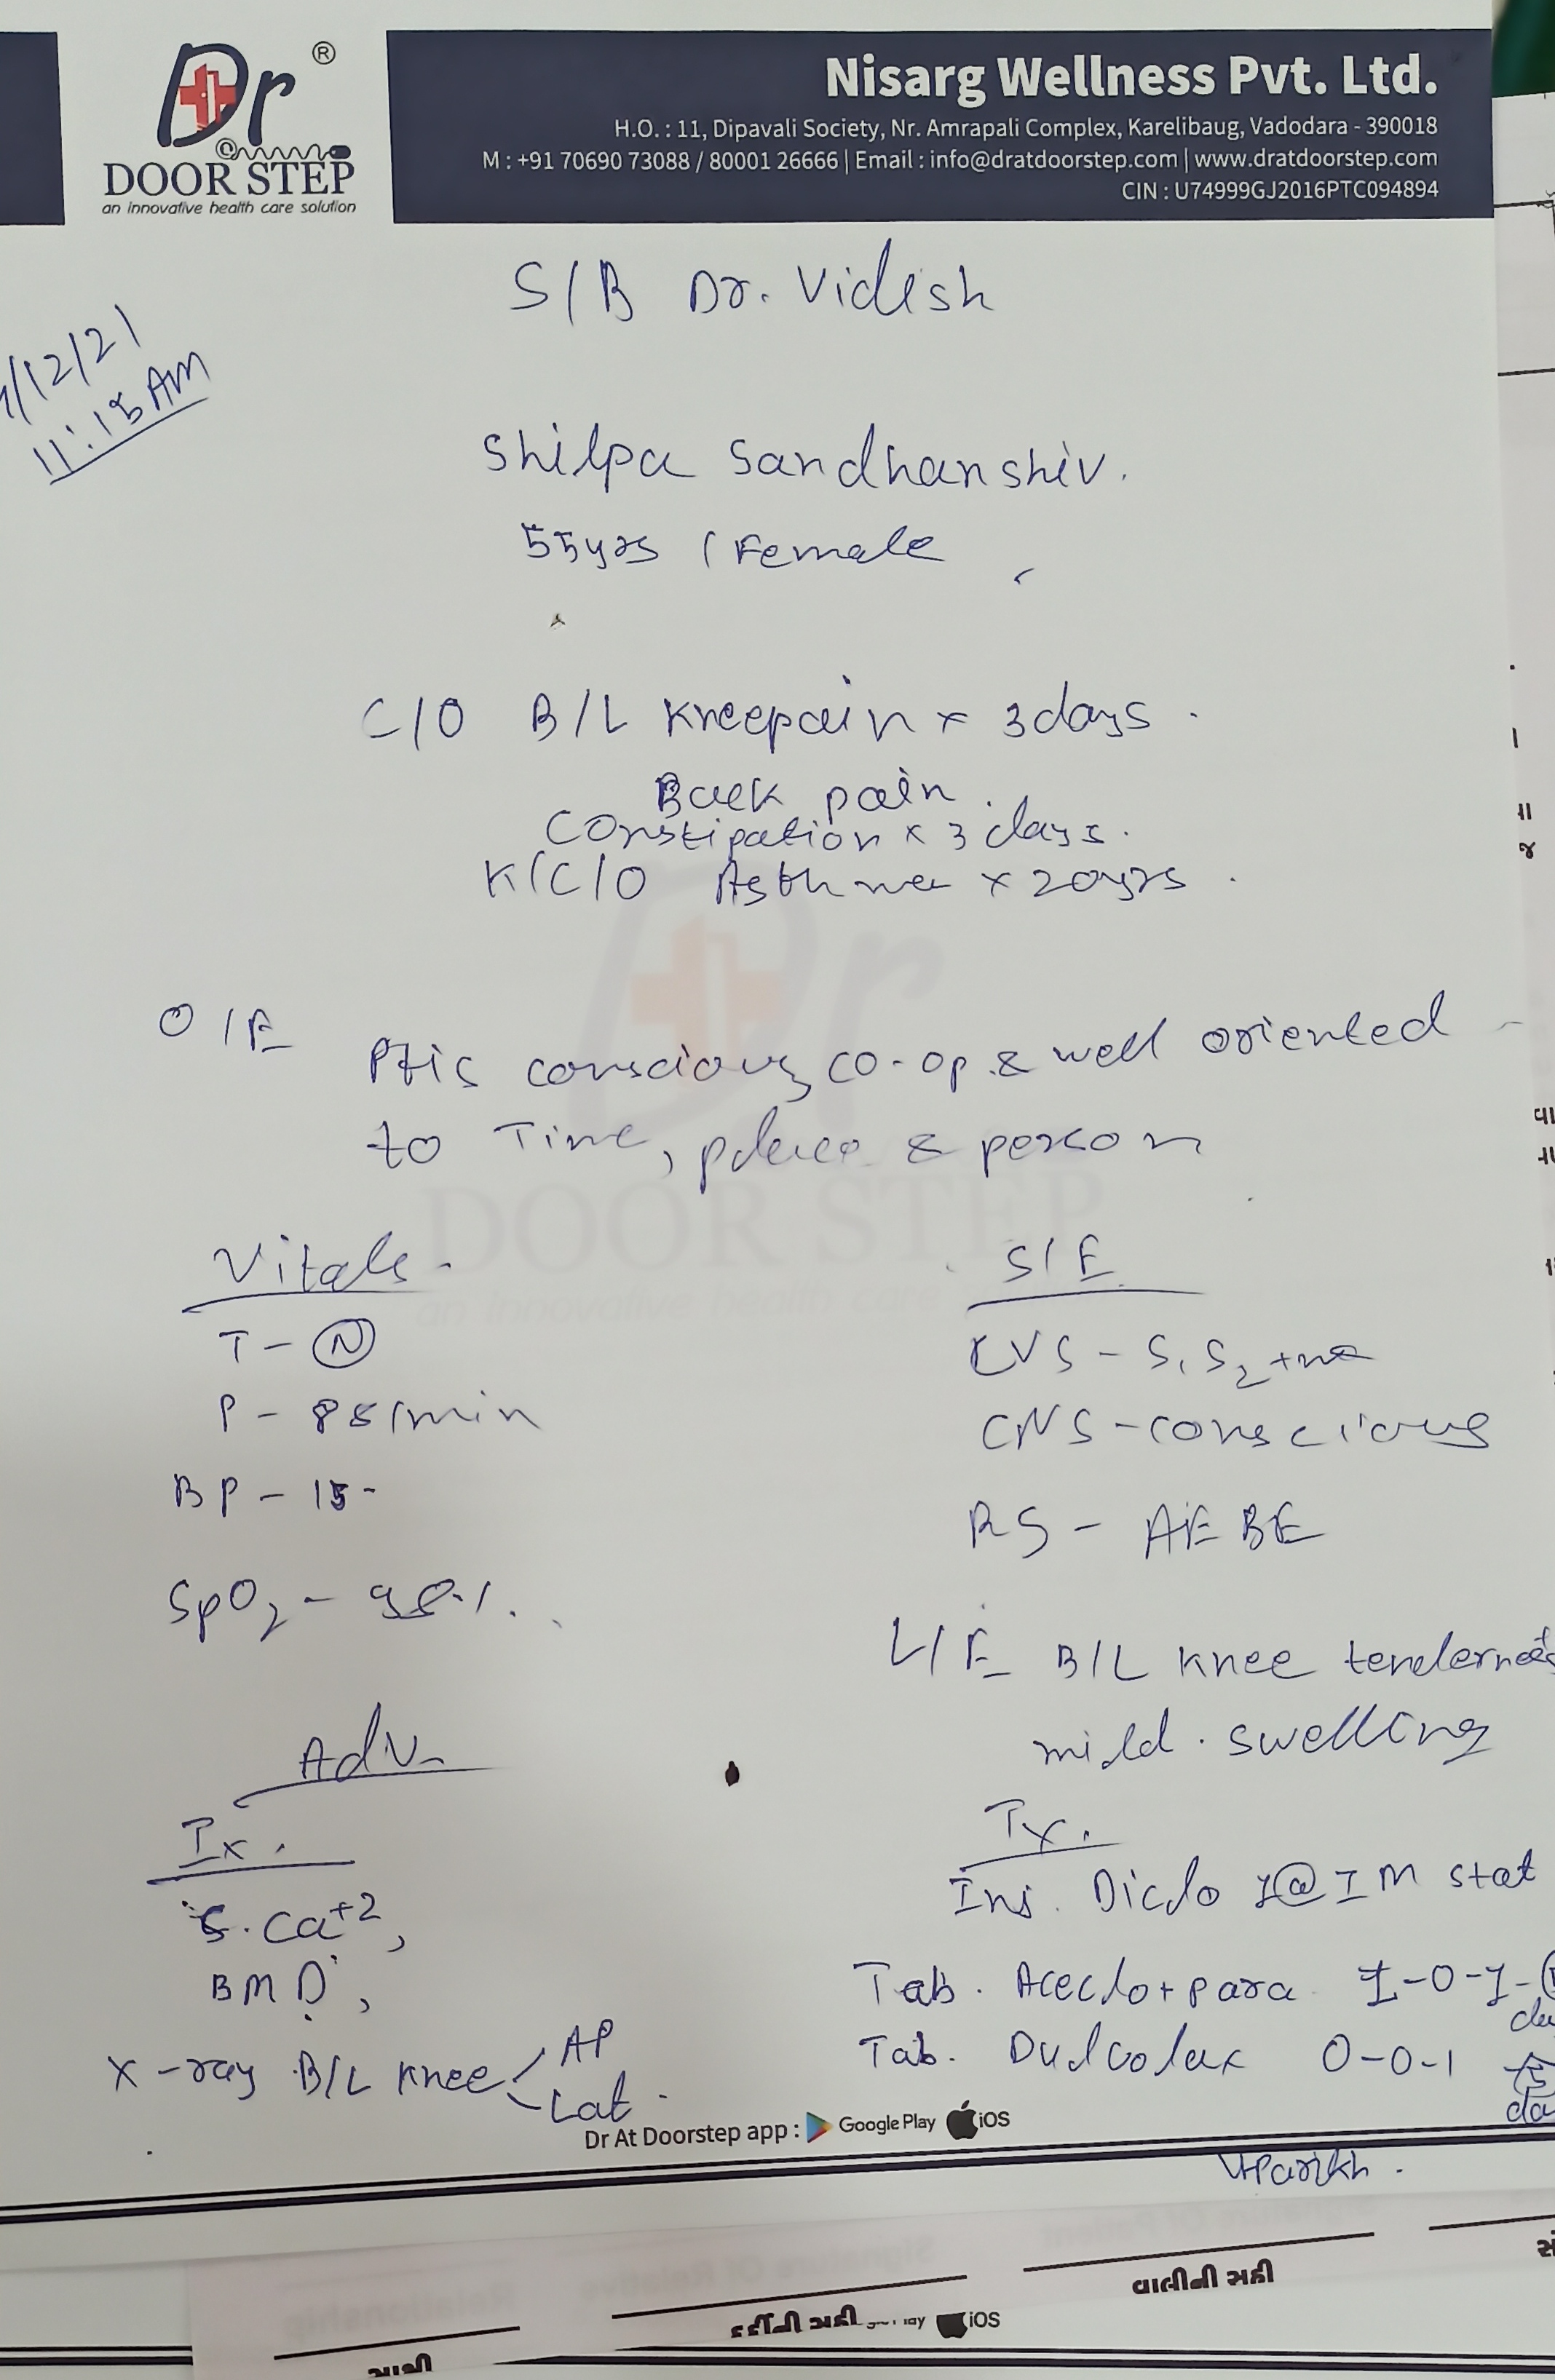 Dr ®
DOOR STEP
an innovative health care solution
Nisarg Wellness Pvt. Ltd.
H.O. : 11, Dipavali Society, Nr. Amrapali Complex, Karelibaug, Vadodara - 390018
M : +91 70690 73088 / 80001 26666 | Email : info@dratdoorstep.com | www.dratdoorstep.com
CIN : U74999GJ2016PTC094894
/12/21
AM
S/B Dr. Videsh
Shilpa Sandhanshiv.
55yrs / Female
C/O B/L kneepain x 3days.
Back pain.
Constipation x 3 days.
K/C/O Asthma x 20yrs.
O/E
Pt is conscious, co-op. & well oriented
to Time, place & person
Vitals -
T - (N)
P - 85/min
BP -
SpO2 - 98%.
S/E
CVS - S1 S2
CNS - conscious
RS - AEBE
L/E B/L knee tenderness+
mild. swelling
Adv.
Ix.
S. Ca+2,
BMD,
X-ray B/L knee < AP
Lat.
Tx.
Inj. Diclo 1@IM stat
Tab. Aceclo + para 1-0-1-
Tab. Dulcolax 0-0-1
Dr At Doorstep app : Google Play iOS
Parikh.
વાલીની સહી
દર્દીની સહી
iOS
સાક્ષી